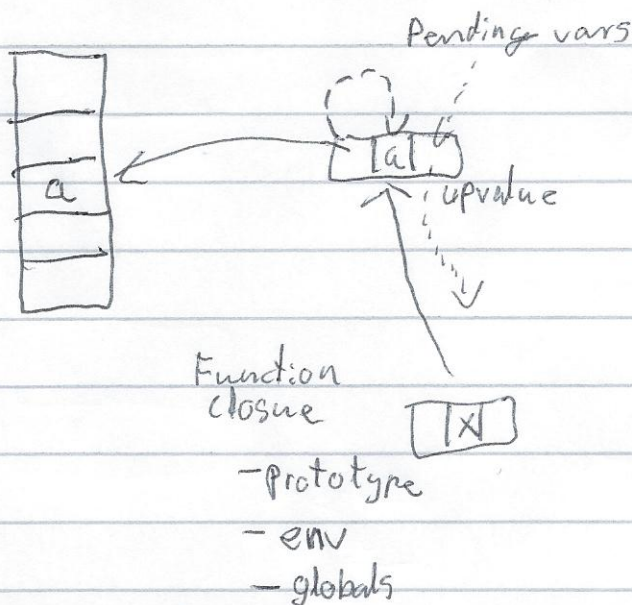 Pending vars
a
a
upvalue
Function
closure
X
- prototype
- env
- globals